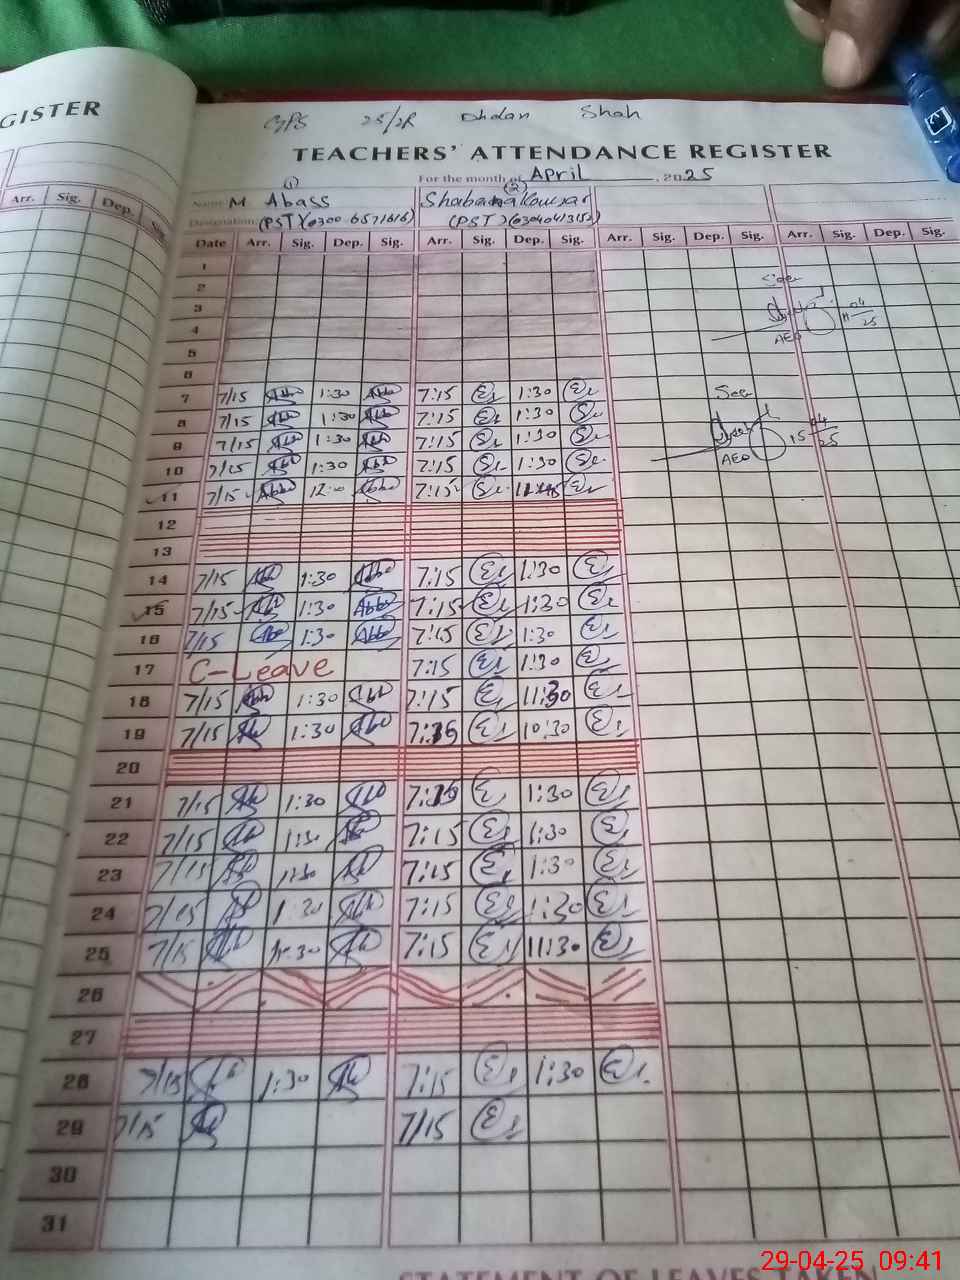 GISTER
Arr. Sig. Dep. Sig.
GPS 25/2R Dhdan Shah
TEACHERS' ATTENDANCE REGISTER
For the month of April , 2025
(1) (2)
Name M Abass Shabana Kousar
Designation (PST) (PST)
Date Arr. Sig. Dep. Sig. Arr. Sig. Dep. Sig. Arr. Sig. Dep. Sig. Arr. Sig. Dep. Sig.
1
2 Seen
3 11 04
4 25
AEO
5
6
7 7/15 1:30 7:15 1:30 Seen
8 7/15 1:30 7:15 1:30
9 7/15 1:30 7:15 1:30 15 04 25
10 7/15 1:30 7:15 1:30 AEO
11 7/15 12:00 7:15
12
13
14 7/15 1:30 7:15 1:30
15 7/15 1:30 7:15 1:30
16 7/15 1:30 7:15 1:30
17 C-Leave 7:15 1:30
18 7/15 1:30 7:15 11:30
19 7/15 1:30 7:15 10:30
20
21 7/15 1:30 7:15 1:30
22 7/15 1:30 7:15 1:30
23 7/15 1:30 7:15 1:30
24 7/15 1:30 7:15 1:30
25 7/15 7:15 11:30
26
27
28 7/15 1:30 7:15 1:30
29 7/15 7/15
30
31
STATEMENT OF LEAVES TAKEN
29-04-25 09:41